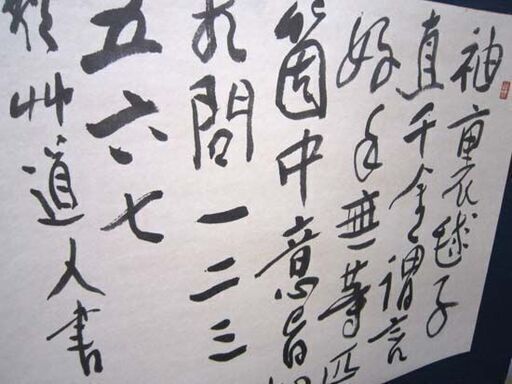 袖裏毬子
直千金謂言
好手無等匹
箇中意旨
相問一二三
五六七
艸道人書